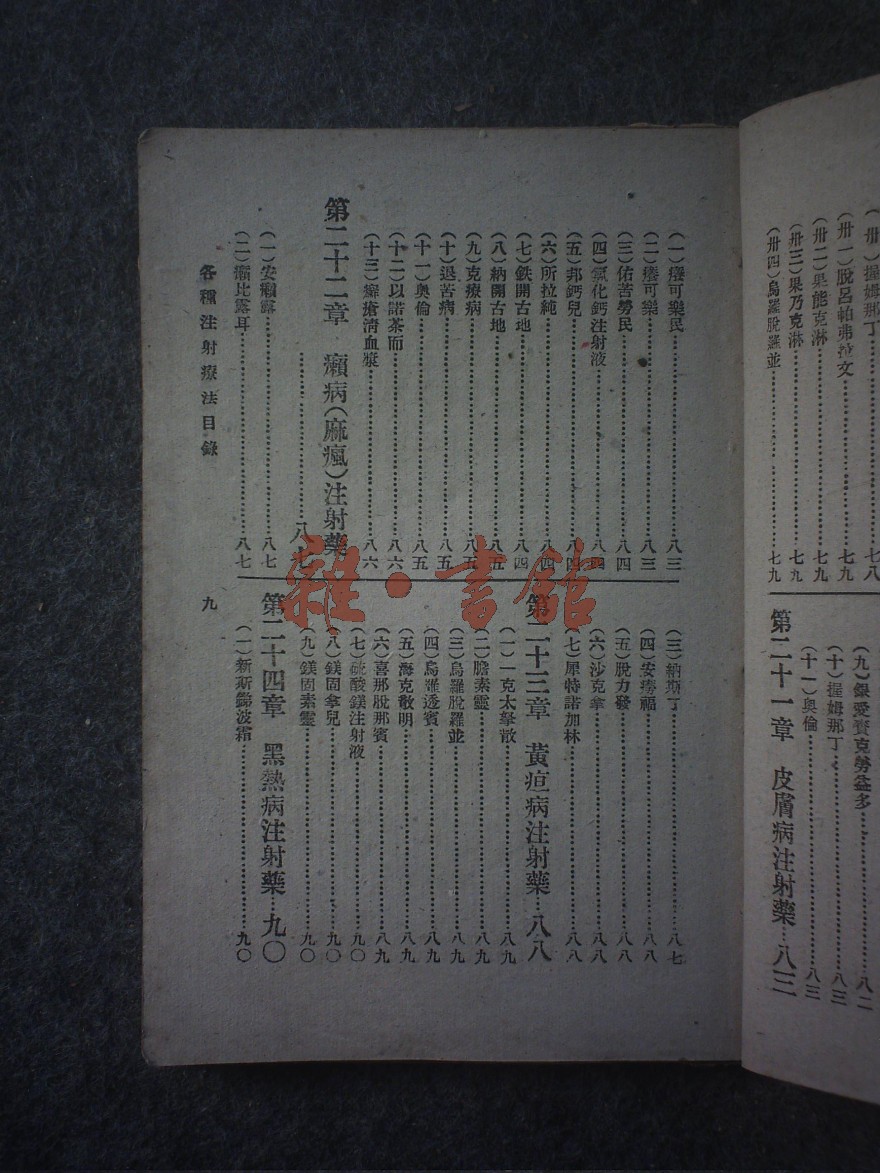 (卅)握姆那丁……七八
(卅一)脫呂帕弗拉文……七九
(卅二)果能克淋……七九
(卅三)果乃克淋……七九
(卅四)烏羅脫羅並……七九
(九)銀愛賽克勞益多……八二
(十)握姆那丁……八三
(十一)奧倫……八三
第二十一章 皮膚病注射藥……八三
(一)癢可樂民……八三
(二)癢可樂……八三
(三)佑苦勞民……八四
(四)氯化鈣注射液……八四
(五)邦鈣兒……八四
(六)所拉純……八四
(七)鉄開古地……八四
(八)納開古地……八五
(九)克療病……八五
(十)退苦病……八五
(十一)奧倫……八五
(十二)以諾茶而……八六
(十三)癬瘡清血漿……八六
第二十二章 癩病(麻瘋)注射藥
……八七
(一)安癩露……八七
(二)癩比露耳……八七
(三)納斯丁……八七
(四)安癆福……八八
(五)脫力發……八八
(六)沙克拿……八八
(七)犀特諾加林……八八
第二十三章 黃疸病注射藥……八八
(一)一克太拏散……八九
(二)膽素靈……八九
(三)烏羅脫羅並……八九
(四)烏羅透賓……八九
(五)海克敢明……八九
(六)喜那脫那賓……八九
(七)硫酸鎂注射液……九〇
(八)鎂固拿兒……九〇
(九)鎂固素靈……九〇
第二十四章 黑熱病注射藥……九〇
(一)新斯錦波霜……九〇
各種注射療法目錄
九
雜·書館